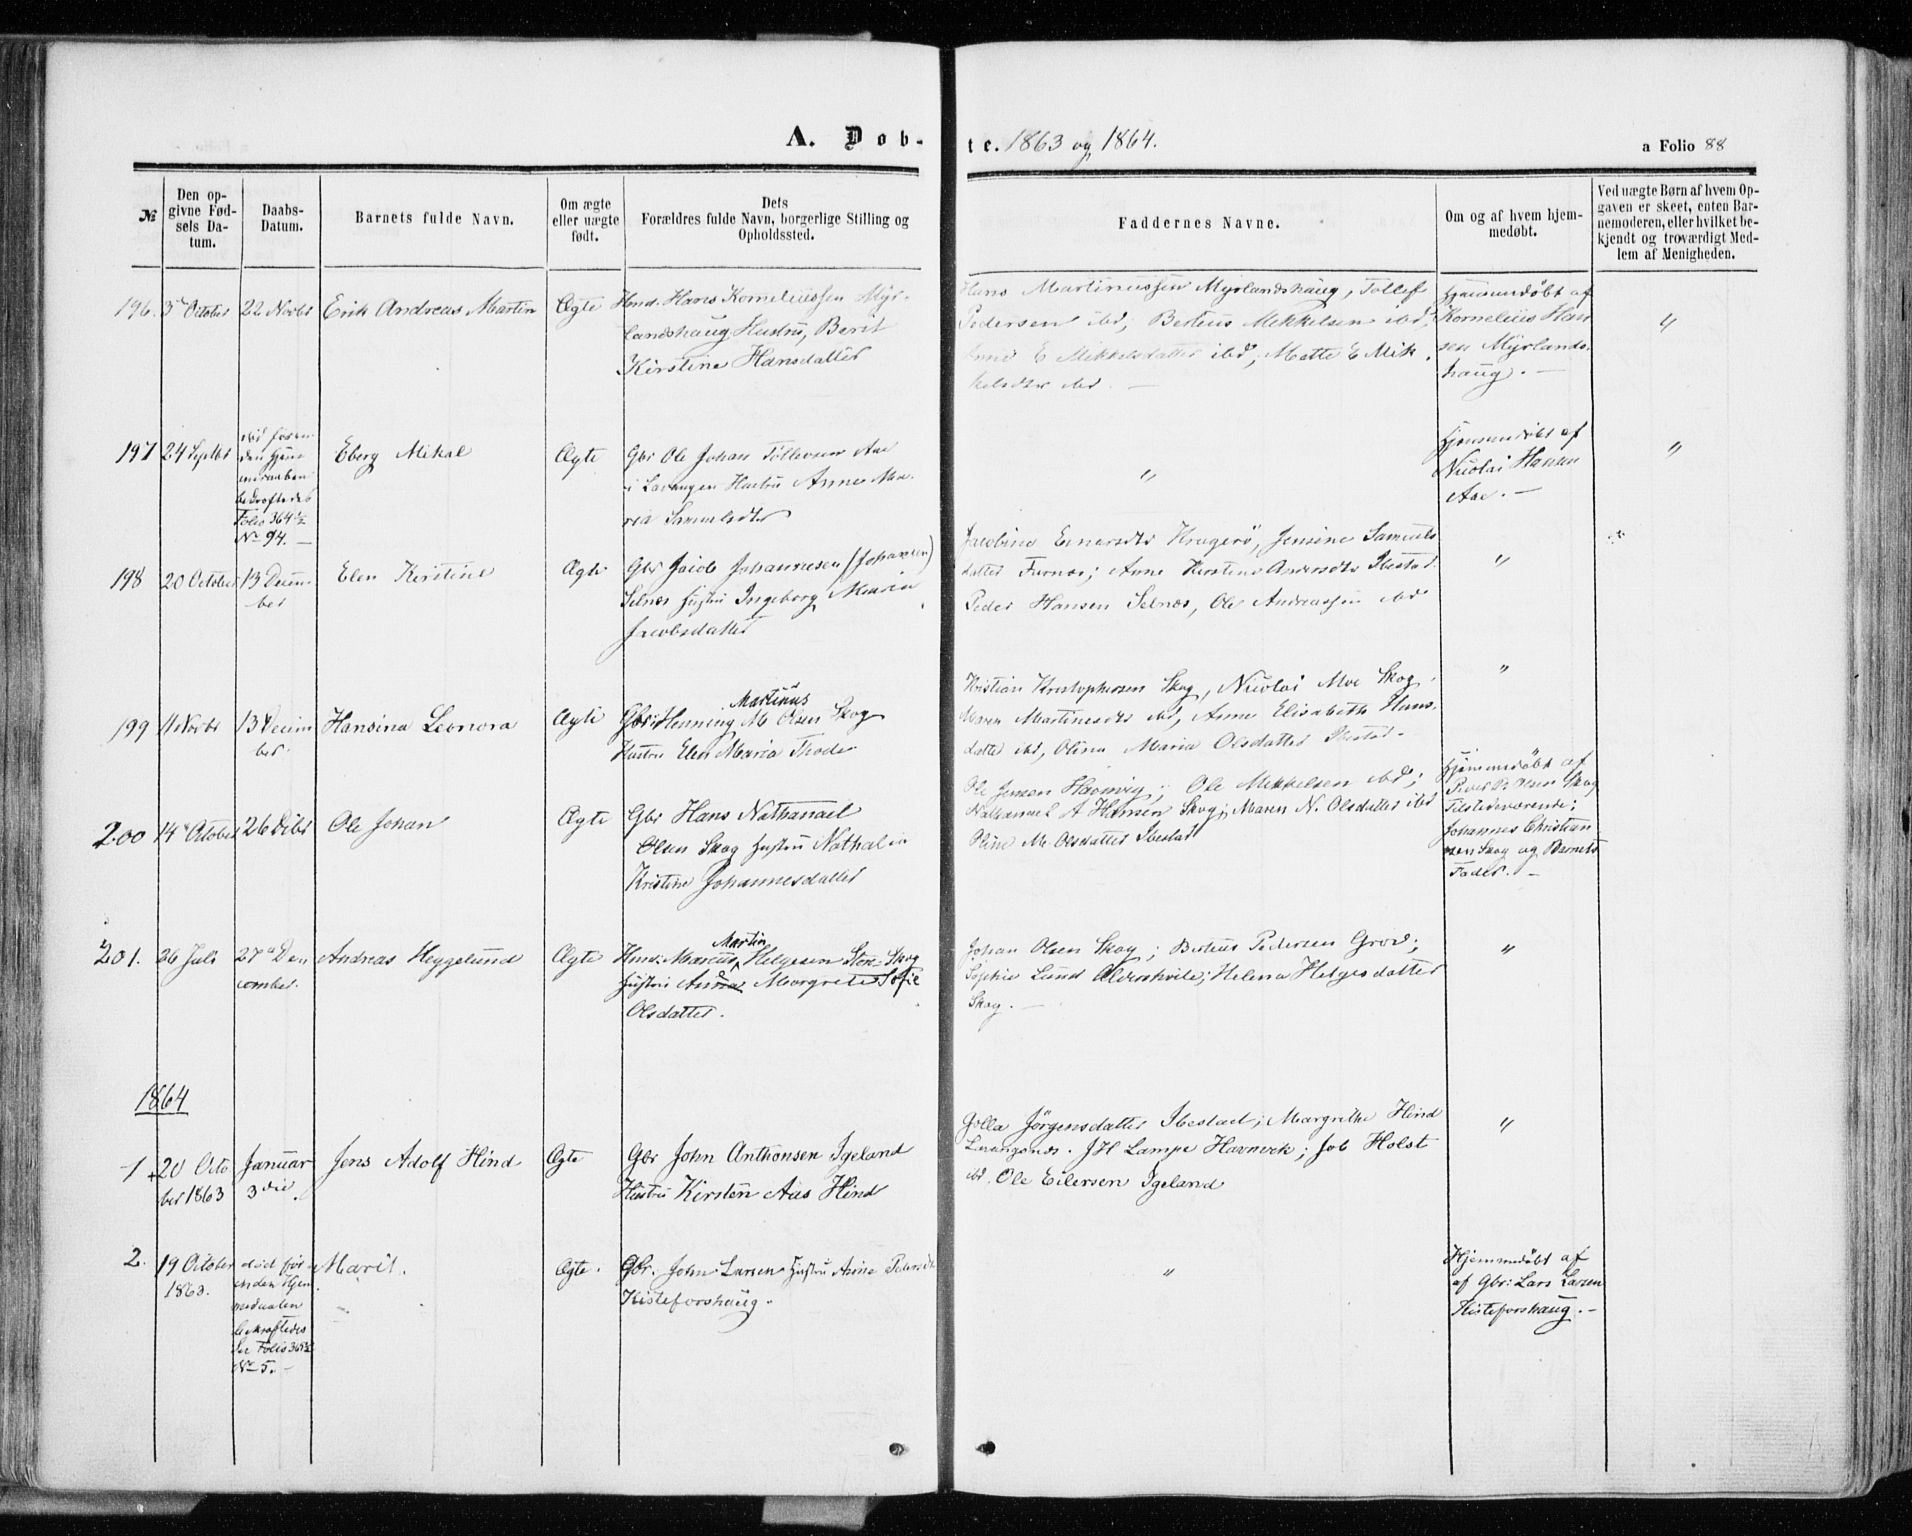 A. Døb-
te. 1863 og 1864.
a Folio 88
№
Den op-
givne Fød-
sels Da-
tum.
Daabs-
Datum.
Barnets fulde Navn.
Om ægte
eller uægte
født.
Dets
Forældres fulde Navn, borgerlige Stilling og
Opholdssted.
Faddernes Navne.
Om og af hvem hjem-
medøbt.
Ved uægte Børn af hvem Op-
gaven er skeet, enten Bar-
nemoderen, eller hvilket be-
kjendt og troværdigt Med-
lem af Menigheden.
196. 3die October 22 Novbr Erik Andreas Martin Ægte
Hmd. Hans Korneliussen Myr-
landshaug Hustru, Berit
Kirstine Hansdatter
Hans Martinussen Myrlandshaug, Tollef
Pedersen ibd, Berteus Mikkelsen ibd,
Anne E Mikkelsdatter ibd, Mette E Mik
kelsdtr ibd. —
Hjemmedøbt af
Kornelius Han
sen Myrlands-
haug. —
"
197 24 Septbr
død foren
den Hjem
medaaben
bekræftedes
Folio 364½
No 94. —
Eberg Mikal Ægte
Gbr Ole Johan Tollevsen Aae
i Lavangen Hustru Anne Ma-
ria Samuelsdtr
"
Hjemmedøbt af
Nicolai Hansen
Aae. —
"
198 20 October 13 Decem
ber
Elen Kirstine Ægte
Gbr Jacob Johannesen (Johansen)
Selnæs Hustru Ingeborg Maria
Jacobsdatter
Jacobine Einersdtr Kragerö, Jensine Samuels
datter Furnæs; Anne Kirstine Andersdtr Ibestad
Peder Hansen Selnæs, Ole Andreassen ibd
"
199 11 Novbr 13 Decem
ber.
Hansina Leonora Ægte
Martinus
Gbr: Henning M Olsen Skog
Hustru Elen Maria Thode
Kristian Kristophersen Skog, Nicolai Moe Skog
Maren Martinesdtr ibd, Anne Elisabeth Hans-
datter ibd, Olina Maria Olsdatter Ibestad.
"
200 14de October 26 Dcbr Ole Johan Ægte
Gbr Hans Nathanael
Olsen Skog Hustru Nathalia
Kristine Johannesdatter
Ole Jensen Havnvig; Ole Mikkelsen ibd;
Nathanael A Hansen Skog; Maren N. Olsdatter ibd
Oline M. Olsdatter Ibestad
Hjemmedøbt af
Peder P. Olsen Skog
Tilstedeværende:
Johannes Christian
sen Skog og Barnets
Fader. —
201. 26 Juli 27de De
cember.
Andreas Heggelund Ægte
Martin
Hmd: Marcus Helgesen Sten-Skog
Hustru Anna Margrete Sofie
Olsdatter.
Johan Olsen Skog; Berteus Pedersen Grov;
Sophie Lund Alderhvile; Helena Helgesdatter
Skog. —
"
1864
1 20 Octo
ber 1863
Januar
3die.
Jens Adolf Hind Ægte
Gbr John Anthonsen Igeland
Hustru Kirsten Aas Hind
Jolla Jörgensdatter Ibestad; Margrethe Hind
Lavangsnæs. JH Lampe Havnvik; Job Holst
ibd. Ole Eilersen Igeland
"
2. 19 October
1863.
død før-
enden Hjem
medaaben
bekræftedes
See Folio 365½
No 5. —
Marit. Ægte.
Gbr. John Larsen Hustru Anne Pedersdtr
Kisteforshaug.
"
Hjemmedøbt af
af Gbr: Lars Larsen
Kisteforshaug. —